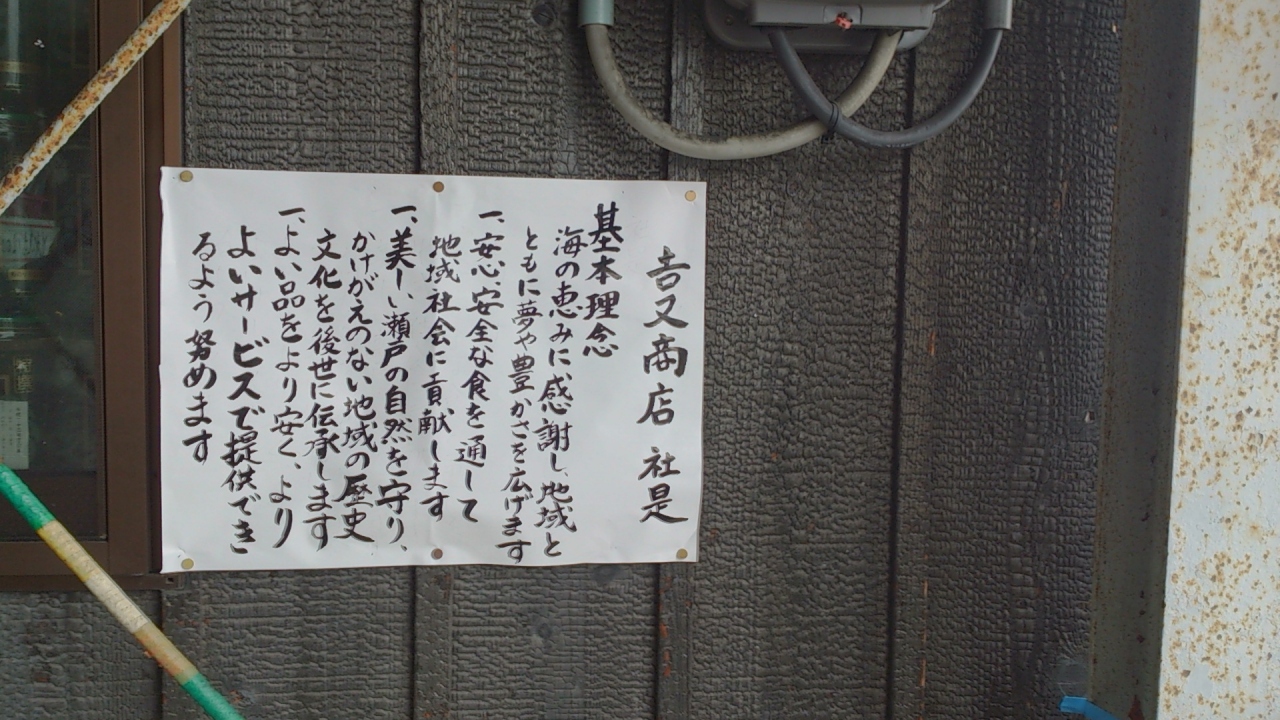 吉又商店 社是
基本理念
海の恵みに感謝し、地域と
ともに夢や豊かさを広げます
一、安心、安全な食を通して
地域社会に貢献します
一、美しい瀬戸の自然を守り、
かけがえのない地域の歴史
文化を後世に伝承します
一、よい品をより安く、より
よいサービスで提供でき
るよう努めます